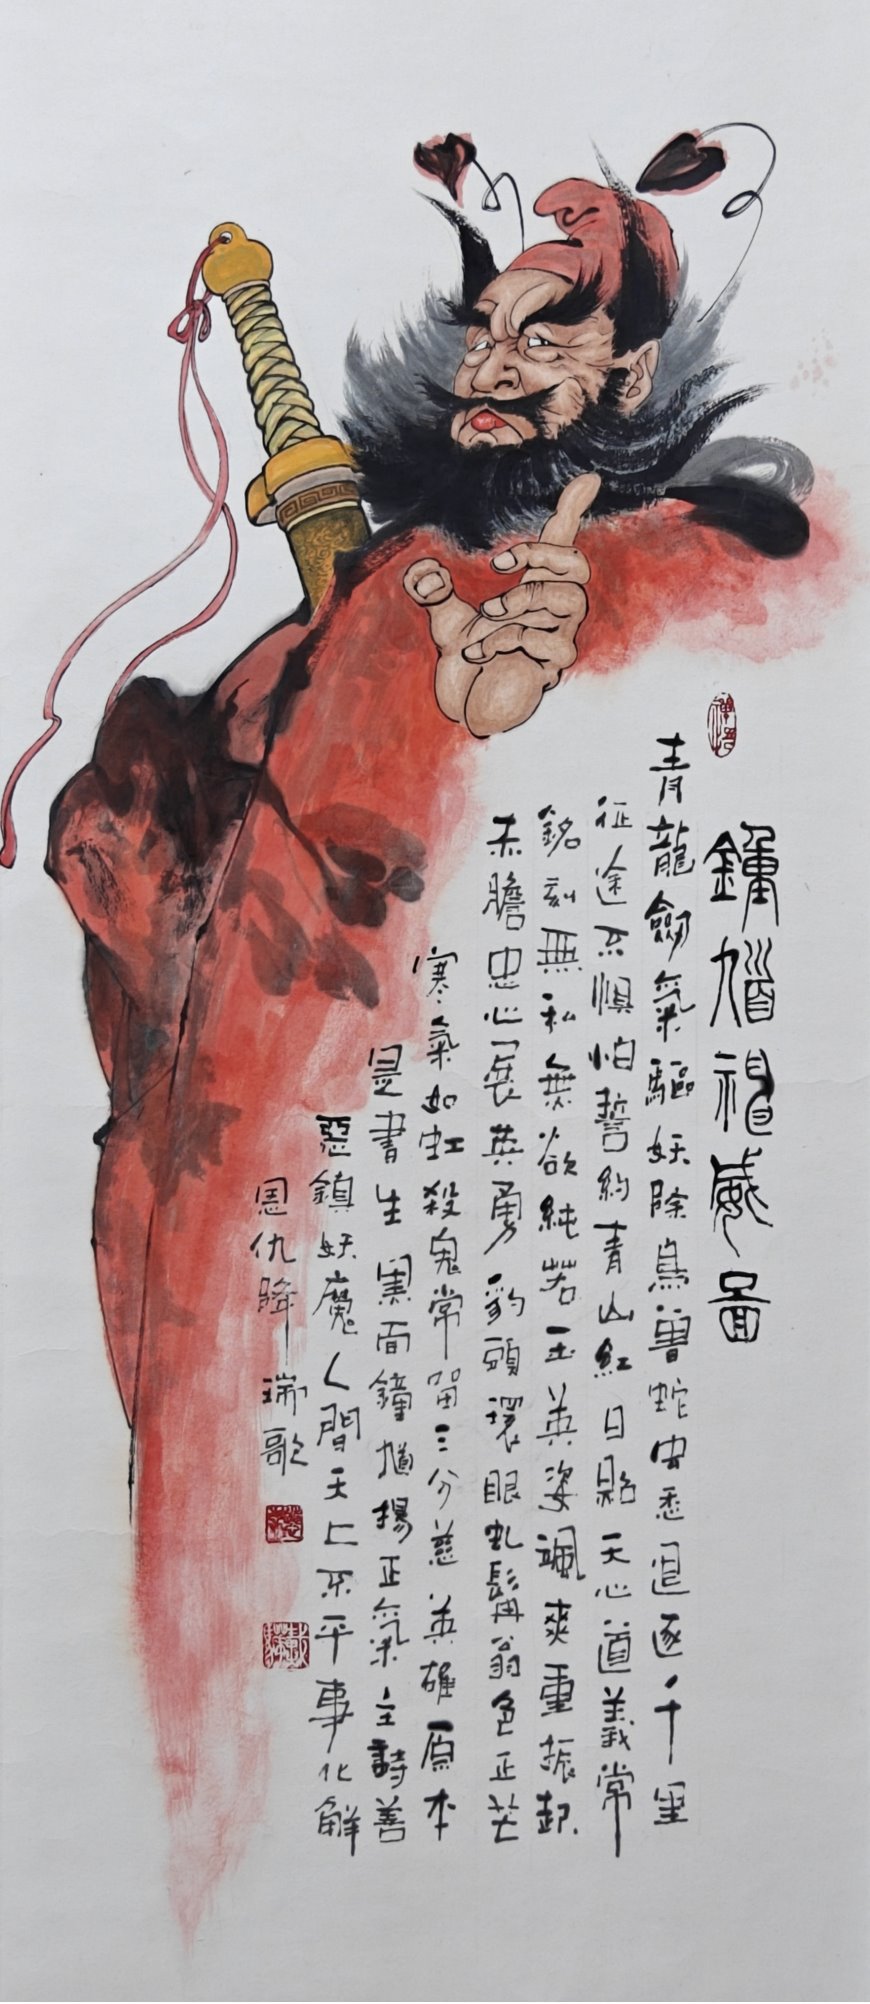 鍾馗神威圖
青龍劍氣驅妖除鳥兽蛇虫悉追逐千里
征途不惧怕誓約青山紅日照天心道義常
銘刻無私無欲純若玉英姿颯爽重振起
赤膽忠心展英勇豹頭環眼虬髯翁色正芒
寒氣如虹殺鬼常留三分慈英雄原本
是書生黑面鍾馗揚正氣主詩善
惡鎮妖魔人間天上不平事化解
恩仇降瑞歌